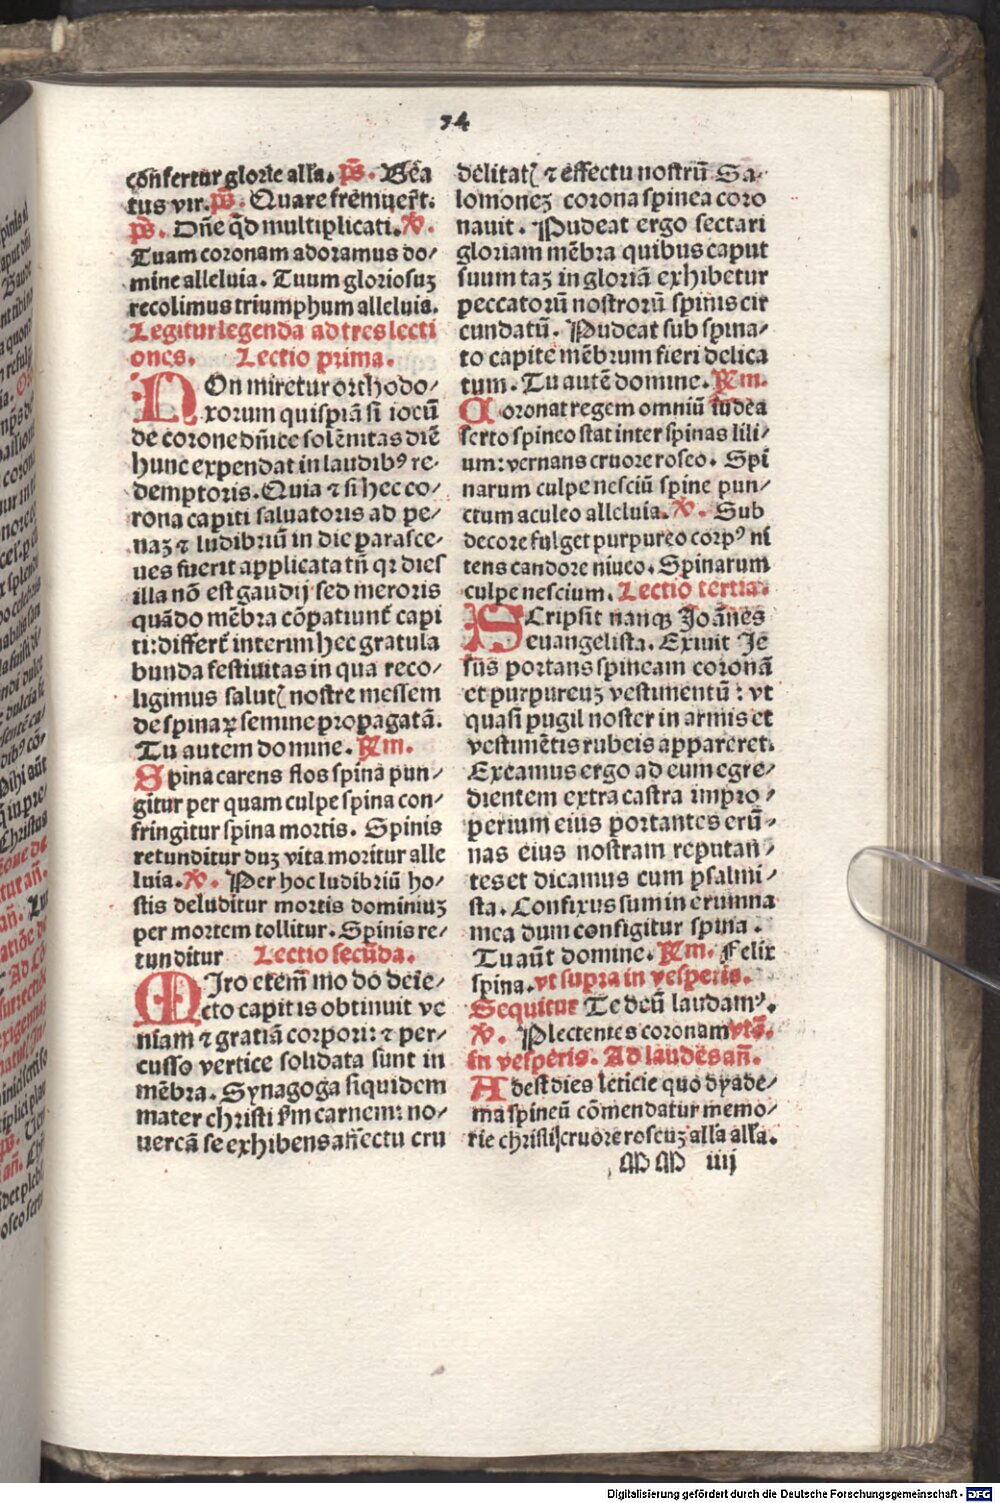 74
cōnfertur glorie alľa. ps̄. Bea
tus vir. ps̄. Quare fremuer̄t.
ps̄. Dn̄e qd̄ multiplicati. ꝟ.
Tuam coronam adoramus do⸗
mine alleluia. Tuum gloriosuꝫ
recolimus triumphum alleluia.
Legitur legenda ad tres lecti
ones. Lectio prima.
NOn miretur orthodo⸗
xorum quispiā si iocū
de corone dn̄ice solēnitas diē
hunc expendat in laudibꝰ re⸗
demptoris. Quia ⁊ si hec co⸗
rona capiti saluatoris ad pe⸗
naꝫ ⁊ ludibriū in die parasce⸗
ues fuerit applicata tn̄ qꝛ dies
illa nō est gaudij sed meroris
quādo mēbra cōpatiunt̄ capi
ti: differt̄ interim hec gratula
bunda festiuitas in qua reco⸗
ligimus salutꝭ nostre messem
de spinaꝝ semine propagatā.
Tu autem domine. Rm̄.
Spina carens flos spina pun⸗
gitur per quam culpe spina con⸗
fringitur spina mortis. Spinis
retunditur duꝫ vita moritur alle
luia. ꝟ. Per hoc ludibriū ho⸗
stis deluditur mortis dominiuꝫ
per mortem tollitur. Spinis re⸗
tunditur Lectio secūda.
MIro etem̄ modo deie⸗
cto capitis obtinuit ve
niam ⁊ gratiā corpori: ⁊ per⸗
cusso vertice solidata sunt in
mēbra. Synagoga siquidem
mater christi ẜm carnem: no⸗
uercā se exhibens affectu cru
delitatꝭ ⁊ effectu nostrū Sa⸗
lomoneꝫ corona spinea coro
nauit. Pudeat ergo sectari
gloriam mēbra quibus caput
suum taꝫ in gloriā exhibetur
peccatorū nostrorū spinis cir
cundatū. Pudeat sub spina⸗
to capite mēbrum fieri delica
tum. Tu autē domine. Rm̄.
Coronat regem omniū iudea
serto spineo stat inter spinas lili⸗
um: vernans cruore roseo. Spi
narum culpe nesciū spine pun⸗
ctum aculeo alleluia. ꝟ. Sub
decore fulget purpureo corpꝰ ni
tens candore niueo. Spinarum
culpe nescium. Lectio tertia.
SCripsit nanqꝫ Joānes
euangelista. Exiuit Je
sus portans spineam coronā
et purpureuꝫ vestimentū: vt
quasi pugil noster in armis et
vestimētis rubeis appareret.
Exeamus ergo ad eum egre⸗
dientem extra castra impro⸗
perium eius portantes erū⸗
nas eius nostram reputan⸗
tes et dicamus cum psalmi⸗
sta. Confixus sum in erumna
mea dum configitur spina.
Tu aūt domine. Rm̄. Felix
spina. vt supra in vesperis.
Sequitur Te deū laudamꝰ.
ꝟ. Plectentes coronam vts̄.
in vesperis. Ad laudes an̄.
Adest dies leticie quo dyade⸗
ma spineū cōmendatur memo⸗
rie christi cruore roseuꝫ alľa alľa.
MM iiij
Digitalisierung gefördert durch die Deutsche Forschungsgemeinschaft - DFG